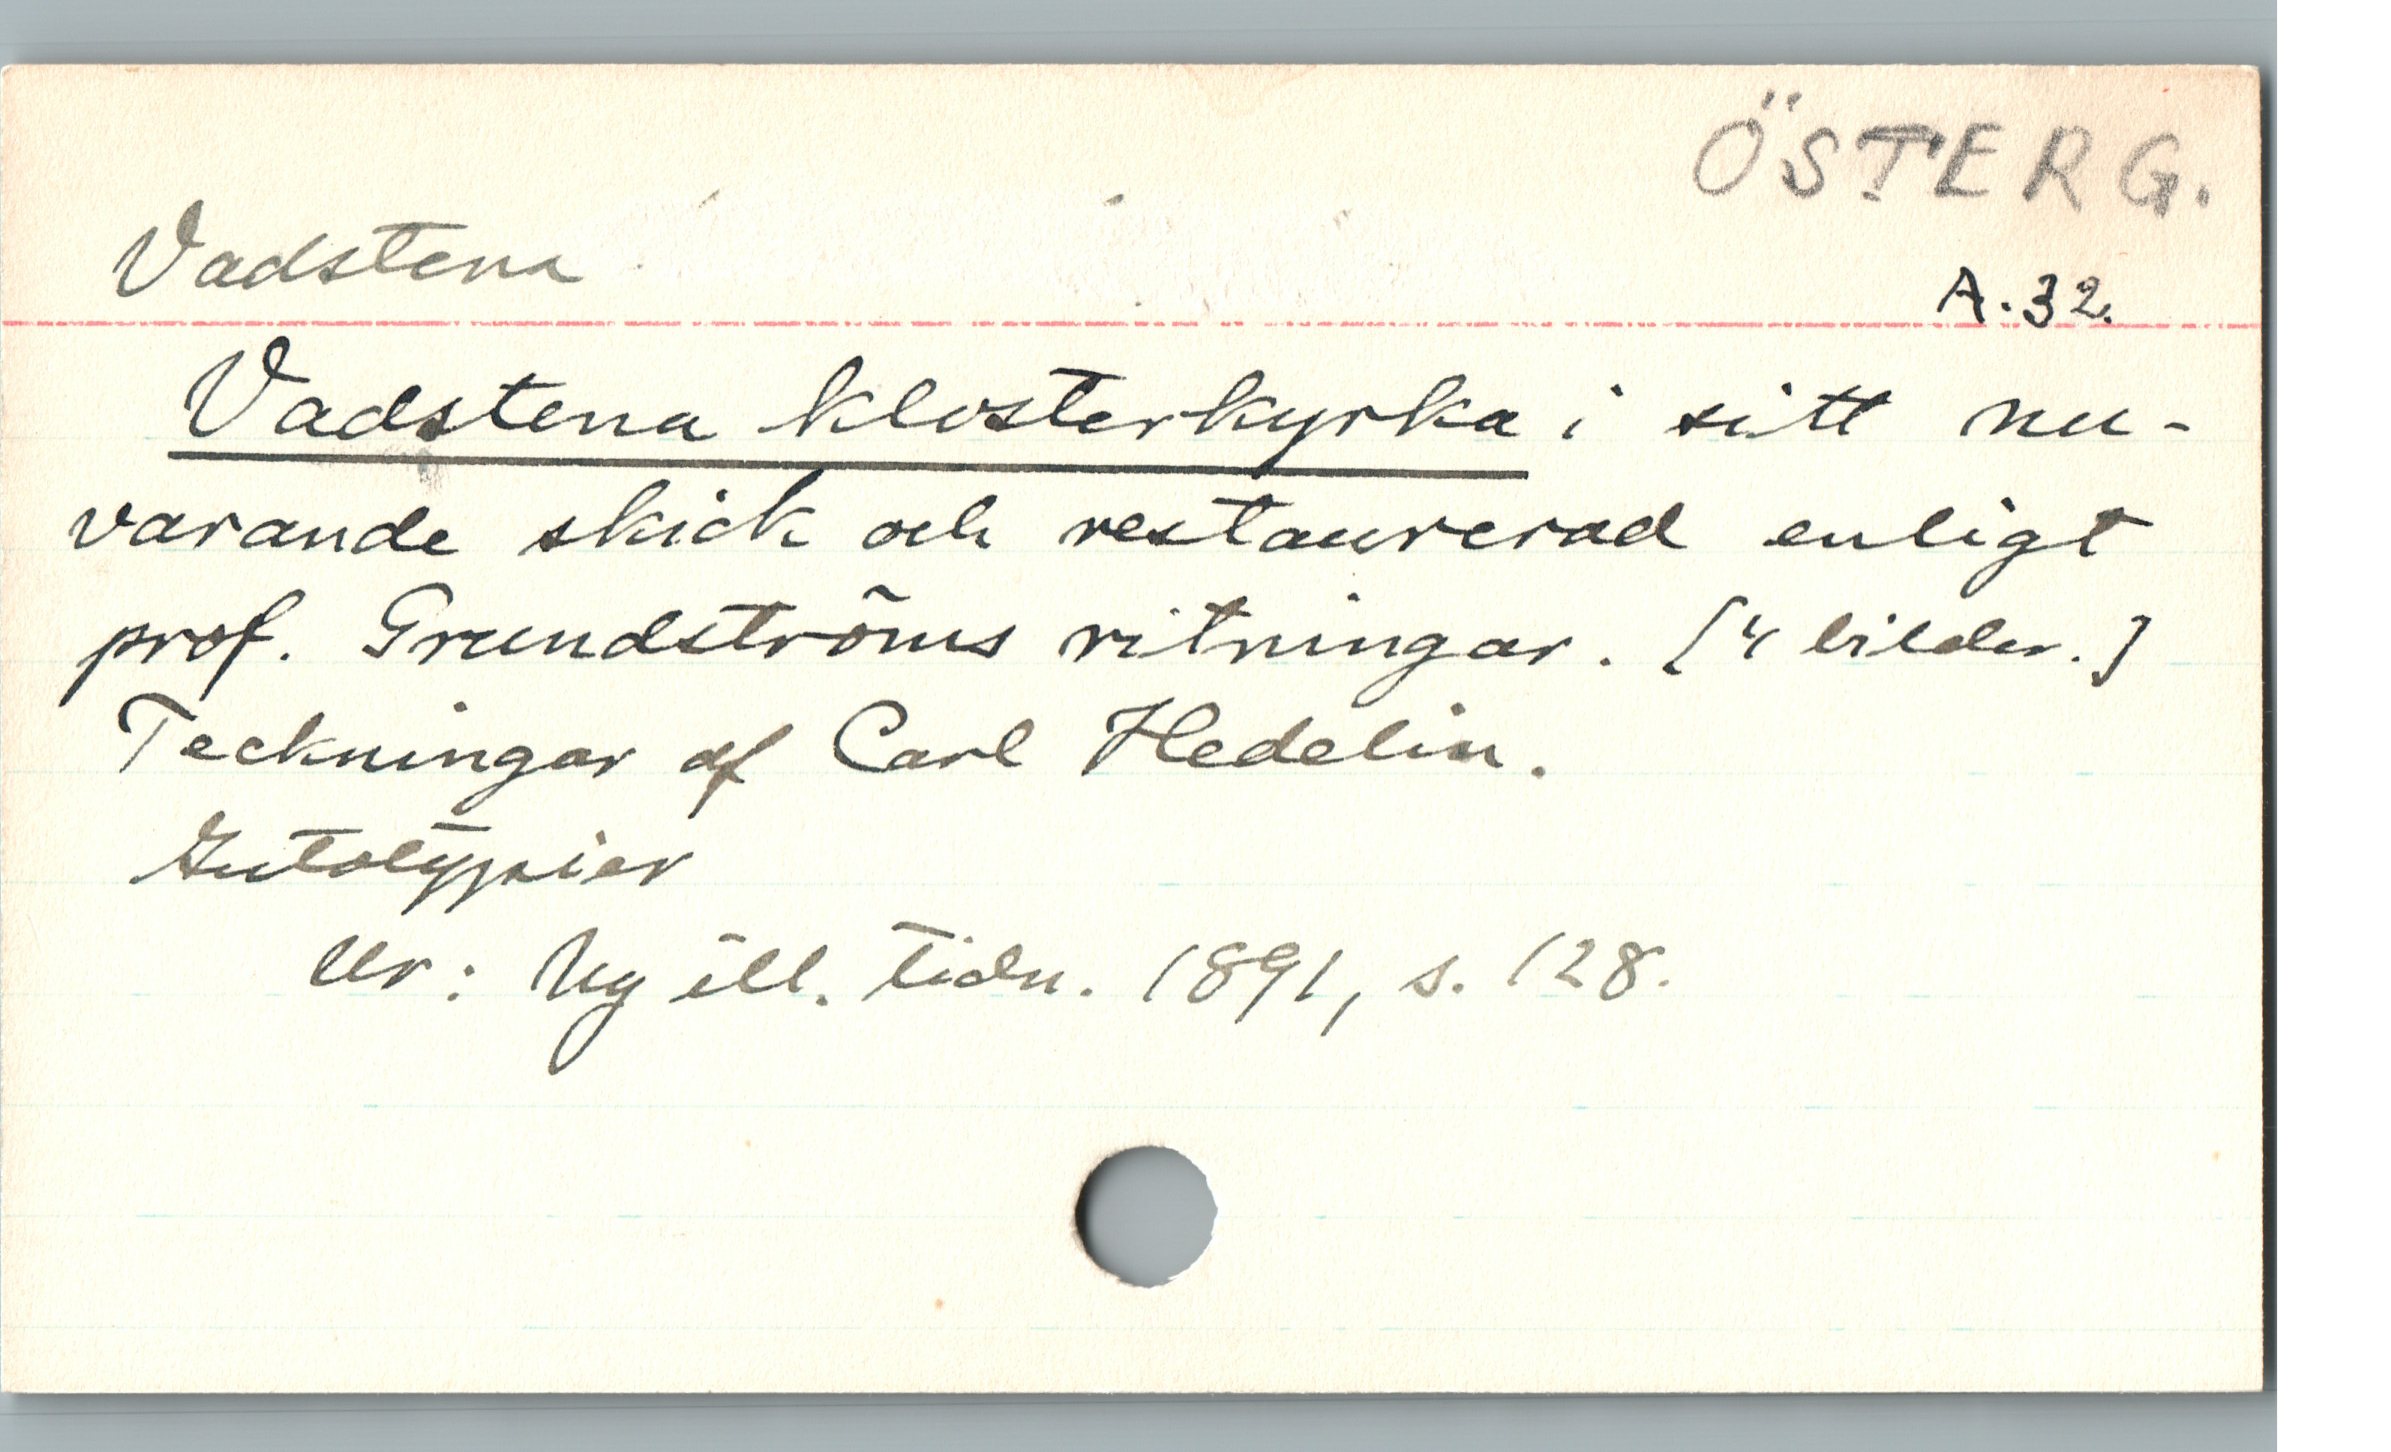 ÖSTERG.
Vadstena
A.32.
Vadstena klosterkyrka i sitt nu-
varande skick och restaurerad enligt
prof. Grundströms ritningar. [4 bilder.]
Teckningar af Carl Hedelin.
Autotypier
Ur: Ny ill. tidn. 1891, s. 128.